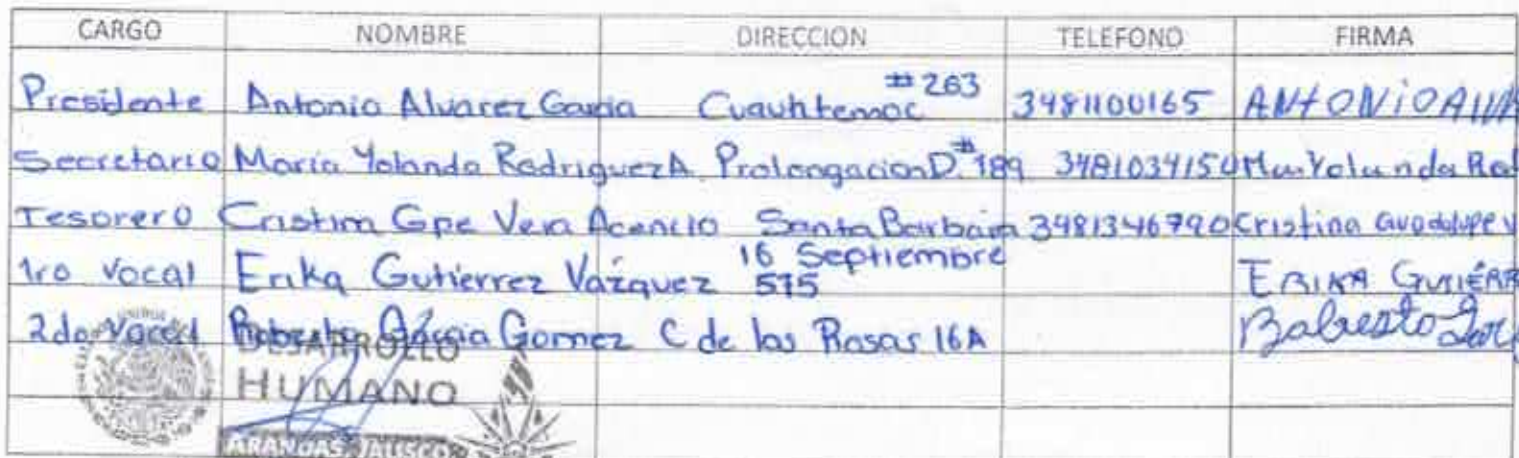 CARGO NOMBRE DIRECCION TELEFONO FIRMA
Presidente Antonio Alvarez Garcia Cuauhtemoc #263 3481100165 ANTONIO
Secretario Maria Yolanda Rodriguez A. Prolongacion D. #189 3481034150 Yolanda Rod
Tesorero Cristina Gpe Vera Acencio Santa Barbara 3481346790 Cristina Guadalupe V
1ro Vocal Erika Gutierrez Vazquez 16 Septiembre 575 ERIKA GUTIÉRR
2do Vocal Roberto Garcia Gomez C de las Rosas 16A
DESARROLLO
HUMANO
ARANDAS, JALISCO